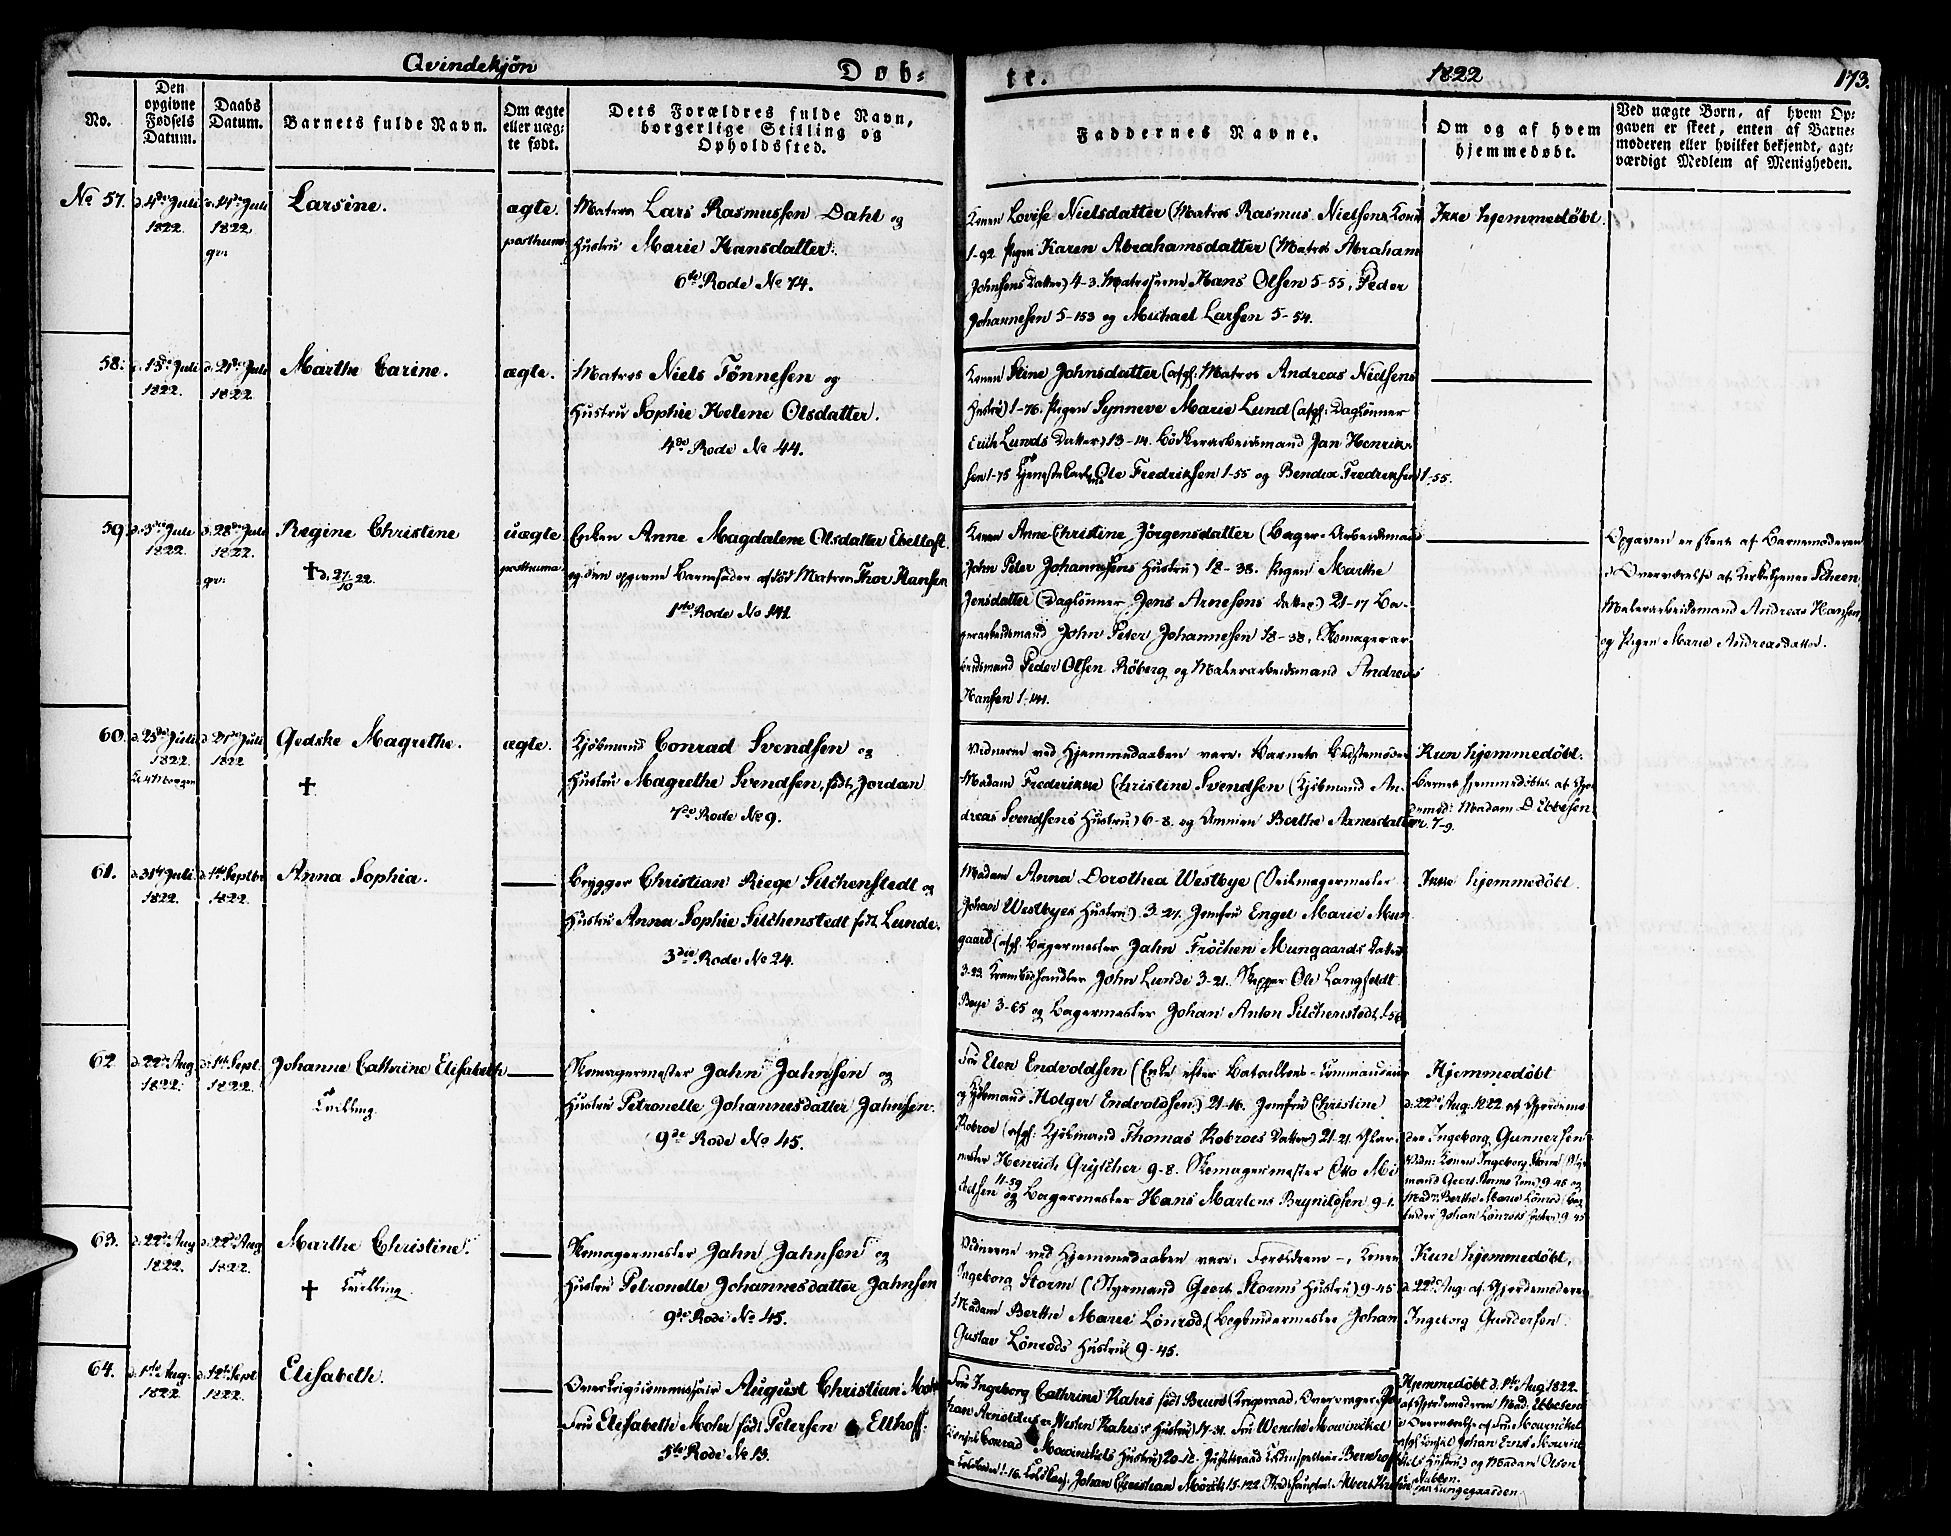 Qvindekjøn
Døb-
te.
1822
173.
No.
Den opgivne Fødsels Datum.
Daabs Datum.
Barnets fulde Navn.
Om ægte eller uæg- te født.
Dets Forældres fulde Navn, borgerlige Stilling og Opholdssted.
Faddernes Navne.
Om og af hvem hjemmedøbt.
Ved uægte Børn, af hvem Op- gaven er skeet, enten af Barne- moderen eller hvilket bekjendt, agt- værdigt Medlem af Menigheden.
No 57.
d. 4de Juli 1822.
d. 14de Juli 1822
Larsine.
ægte.
posthuma
Matros Lars Rasmussen Dahl og
Hustru Marie Hansdatter.
6te Rode No 74.
Konen Lovise Nielsdatter (Matros Rasmus Nielsens Kone)
1-92 Pigen Karen Abrahamsdatter (Matros Abraham
Johnsens Datter) 4-3. Matroserne Hans Olsen 5-55, Peder
Johannesen 5-153 og Michael Larsen 5-54.
Ikke hjemmedøbt.
58.
d. 15de Juli 1822.
d. 21de Juli 1822
Marthe Carine.
ægte.
Matros Niels Tønnesen og
Hustru Sophie Helene Olsdatter.
4de Rode No 44.
Konen Stine Johnsdatter (afgl: Matros Andreas Nielsens
Hustru) 1-76. Pigen Synneve Marie Lund (afgl: Daglønner
Erich Lunds Datter) 13-14. Bødkerarbeidsmand Jan Henrik-
sen 1-75 Tjenestekarlene Ole Fredriksen 1-55 og Bendix Fredriksen 1-55.
59
d. 3die Juli 1822.
d. 28de Juli 1822.
Regine Christine
† d. 27/10 22.
uægte
posthuma
Enken Anne Magdalene Olsdatter Ebeltoft
og den opgivne Barnefader afdød Matros Thor Hansen
1ste Rode No 141
Konen Anne Christine Jørgensdatter (Bager-Arbeidsmand
John Peter Johannesens Hustru) 18-38. Pigen Marthe
Jensdatter (Daglønner Jens Arnesens Datter) 21-17 Ba-
gerarbeidsmand John Peter Johannesen 18-38, Skomagerar-
beidsmand Peder Olsen Röberg og Malerarbeidsmand Andreas
Hansen 1-141.
Opgaven er skeet af Barnemoderen
i Overværelse af Kirketjener Scheen
Malerarbeidsmand Andreas Hansen
og Pigen Marie Andreasdatter.
60.
d. 25de Juli 1822
d. 21de Juli 1822
Gedske Magrethe.
†
ægte.
Kjøbmand Conrad Svendsen og
Hustru Magrethe Svendsen, født Jordan
7de Rode No 9.
Vidnerne ved Hjemmedaaben vare: Barnets Bedstemoder
Madam Frederikke Christine Svendsen (Kjøbmand An-
dreas Svendsens Hustru) 6-8. og Ammen Berthe Arnesdatter 7-9.
Kun hjemmedøbt.
Barnet hjemmedøbtes af Gjor-
demod: Madam D Ebbesen
61.
d. 31te Juli 1822.
d. 1ste Septbr 1822.
Anna Sophia.
Brygger Christian Riege Silchenstedt og
Hustru Anna Sophie Silchenstedt født Lunde.
3die Rode No 24.
Madam Anna Dorothea Westbye (Seilmagermester
Johan Westbyes Hustru) 3-27. Jomfru Engel Marie Mun-
gaard (afgl. Bagermester Jahn Frøchen Mungaards Datter
3-23. Krambodhandler John Lunde 3-21. Skipper Ole Langfeldt
Boye 3-65 og Bagermester Johan Anton Silchenstedt
Ikke hjemmedøbt.
62
d. 22de Aug 1822.
d. 1ste Sept 1822.
Johanne Cathrine Elisabeth
Tvilling.
Skomagermester Jahn Jahnsen og
Hustru Petronelle Johannesdatter Jahnsen.
9de Rode No 45.
Fru Elen Endvoldsen (Enke efter Bataillons-Commandeur
og Kjøbmand Holger Endvoldsen) 21-16. Jomfru Christine
Robroe (afgl: Kjøbmand Thomas Robroes Datter) 21-21
mester Henrich Gryticher 9-8. Skomagermester Otto Mi-
chelsen 11-59 og Bagermester Hans Martens Brynildsen 9-1.
Hjemmedøbt
d. 22de Aug. 1822 af Gjordemo-
der Ingeborg Gunnersen
Vidn: Konen Ingeborg Storm (Styr-
mand Geert Storms Kone) 9-45 og
Mad: Berthe Marie Lönrod (Bog-
binder Johan Lönrods Hustru) 9-45
63.
d. 22de Aug 1822.
d. 22de Aug 1822.
Marthe Christine.
† Tvilling.
Skomagermester Jahn Jahnsen og
Hustru Petronelle Johannesdatter Jahnsen
9de Rode No 45.
Vidnerne ved Hjemmedaaben vare: Forældrene, Konen
Ingeborg Storm (Styrmand Geert Storms Hustru) 9-45
Madam Berthe Marie Lönrod, (Bogbindermester Johan
Gustav Lönrods Hustru) 9-45.
Kun hjemmedøbt,
d. 22de Aug. af Gjordemoderen
Ingeborg Gundersen.
64.
d. 1ste Aug. 1822
d. 12te Sept 1822.
Elisabeth.
Overkrigscommissair August Christian Mohr
Fru Elisabeth Mohr født Petersen Elthoff.
5te Rode No 13.
Fru Ingeborg Cathrine Kahrs født Bruun (Krigsraad, Overvrager Jo-
han Arnoldus v. Westen Kahrs's Hustru) 17-31. Fru Wenche Mowinckel
(Consul Conrad Mowinckels Hustru) 20-12. Justitsraad
Johan Christian Mørch 15-122
Hjemmedøbt d. 1ste Aug 1822.
af Gjordemoderen Mad: Ebbesen
i Overværelse af Fru Mowinkel
(afgl. Consul Johan Ernst Mowinc-
kels Hustru) og Madam Olsen
paa Lungegaarden